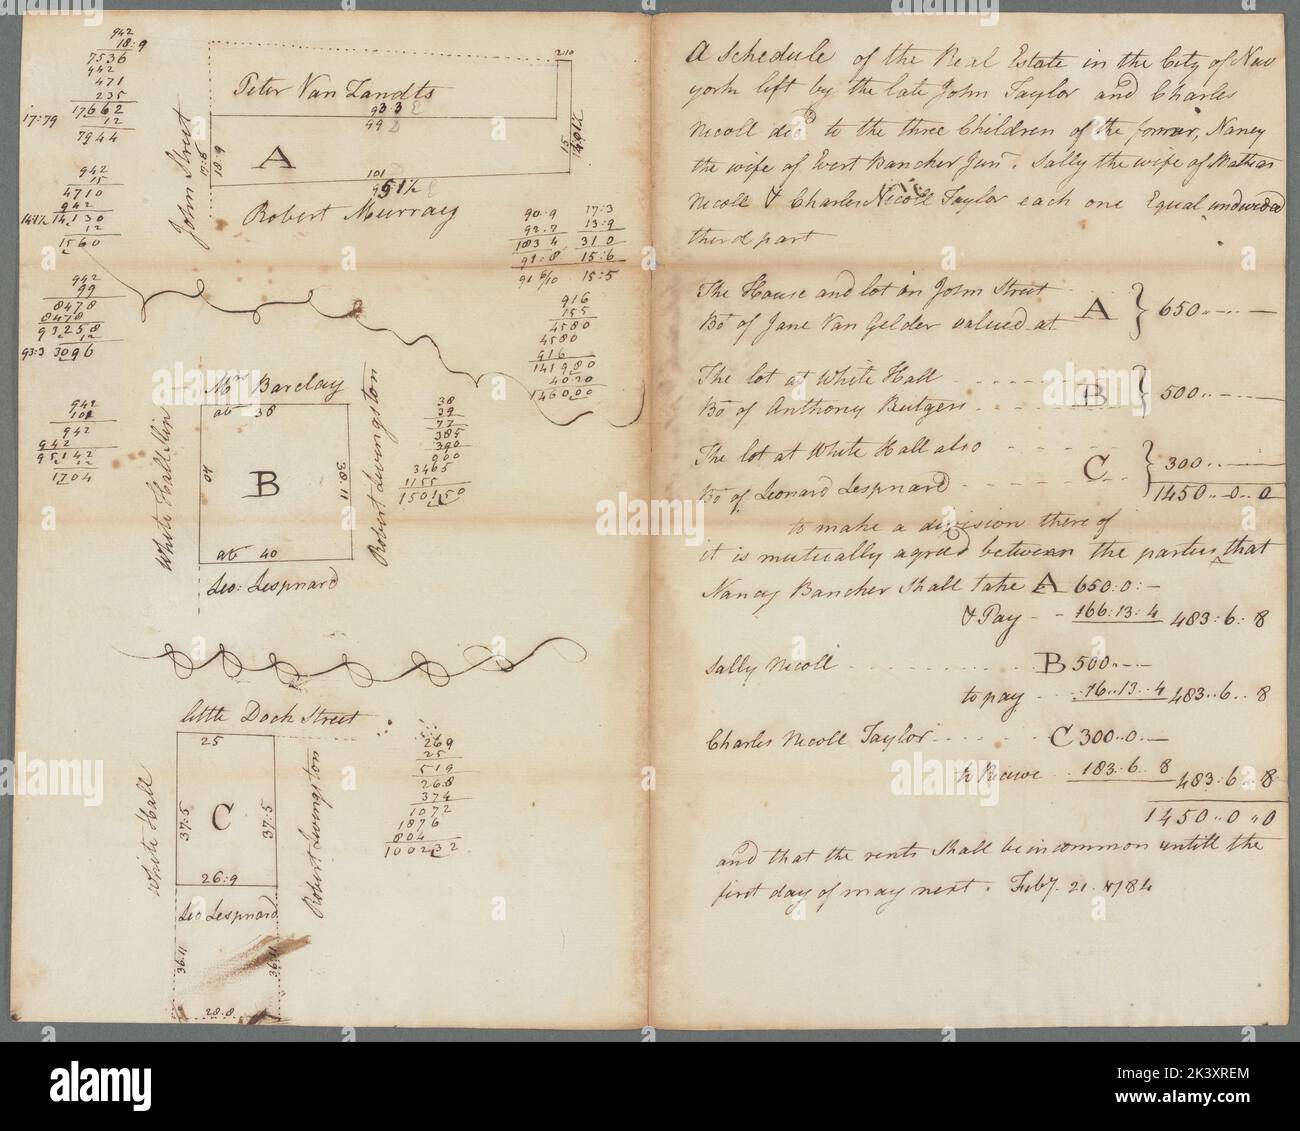 942
18:9
7536
942
471
235
17662
12
17:79
7944
942
15
4710
942
14130
12
1560
942
99
8478
8478
93258
12
93:3 3096
942
101
942
942
95142
12
1704
210
Peter Van Zandts
933
99
John Street
17:6
18:9
A
15
101
9551½
Robert Murray
90.9 17:3
92.7 13:9
183 4 31 0
91:8 15:6
91 6/10 15:5
916
155
4580
4580
916
141980
4020
146000
Mr Barclay
ab 38
White Hall Slip
40
B
38.11
Robert Livingston
ab 40
Leo: Lespnard
38
39
77
385
390
900
3465
1155
150150
little Dock Street
25
White Hall
37:5
C
37:5
Robert Livingston
26:9
Leo Lespnard
36.11
36.11
28.8
269
25
519
268
374
1072
1876
804
100232
A Schedule of the Real Estate in the City of New
york left by the late John Taylor and Charles
Nicoll decd to the three Children of the former, Nancy
the wife of Evert Bancker Junr. Sally the wife of Mathias
Nicoll & Charles Nicoll Taylor each one Equal undivided
third part
The House and lot in John Street
Bo of Jane Van Gelder valued at A } 650..-..-
The lot at White Hall
Bo of Anthony Rutgers B } 500..-..-
The lot at White Hall also
Bo of Leonard Lespnard C } 300..-..-
1450..0..0
to make a division there of
it is mutually agreed between the parties that
Nancy Bancker Shall take A 650:0:-
& Pay 166:13:4 483:6:8
Sally Nicoll B 500..-..-
to pay 16..13..4 483..6..8
Charles Nicoll Taylor C 300..0..-
to Receive 183..6..8 483..6..8
1450..0..0
and that the rents Shall be in common untill the
first day of may next. Feby. 21. 1784
alamy
Image ID: 2K3XREM
www.alamy.com